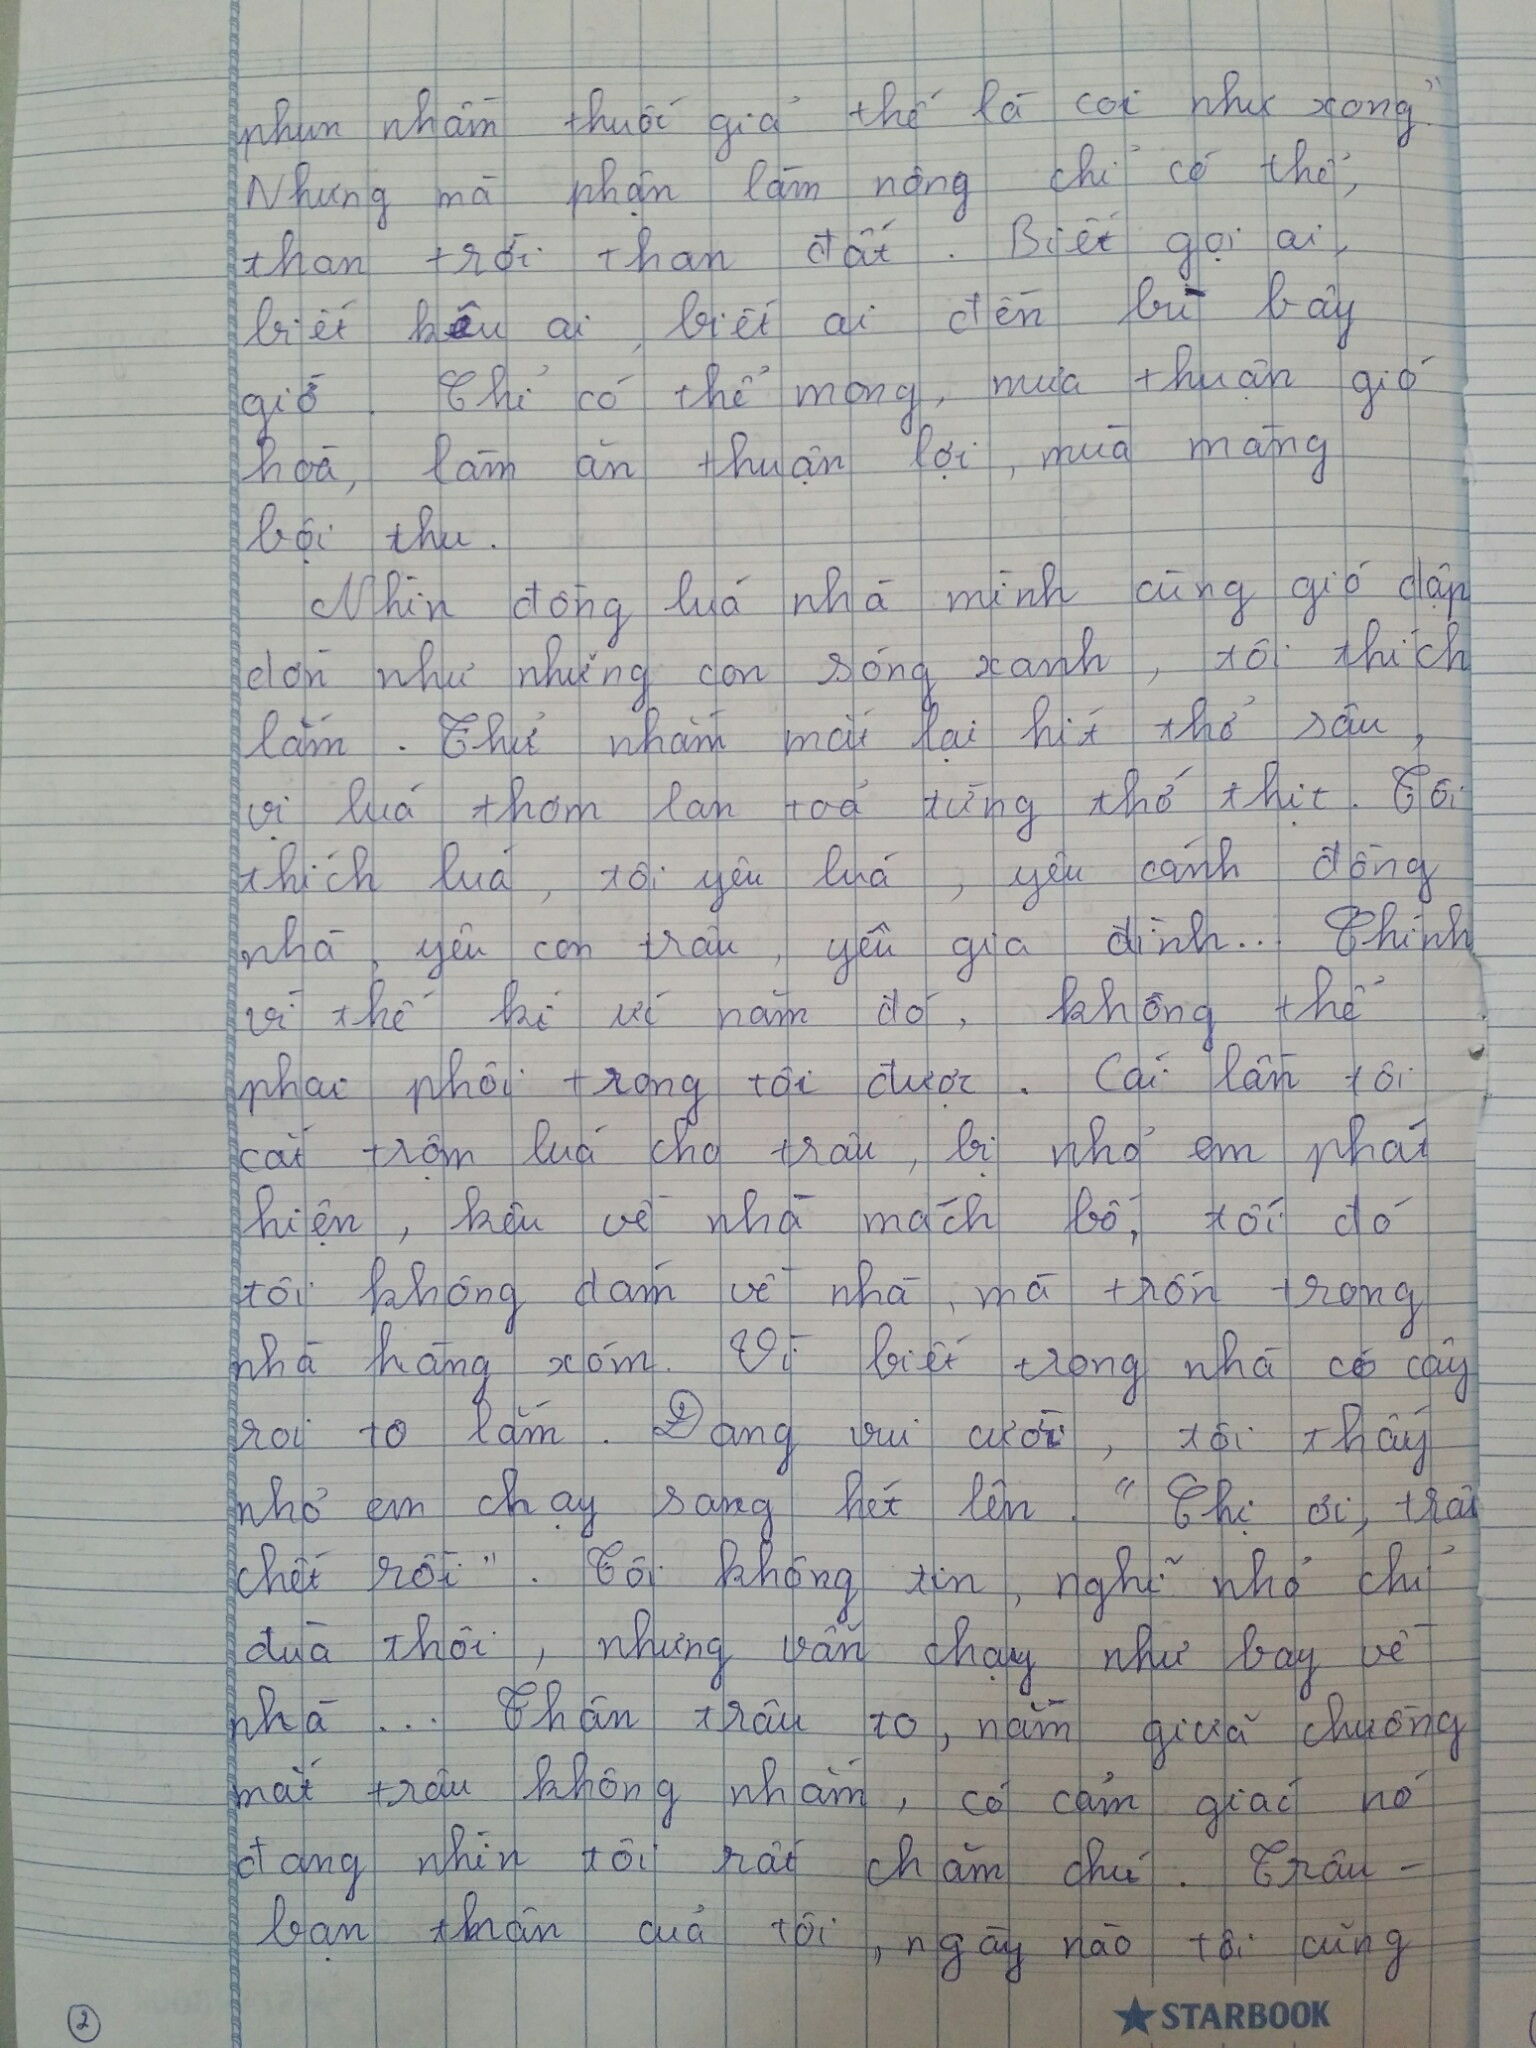 phun nhầm thuốc giả thế là coi như xong"
Nhưng mà phận làm nông chỉ có thể,
than trời than đất. Biết gọi ai,
biết kêu ai, biết ai đền bù bây
giờ. Chỉ có thể mong, mưa thuận gió
hoà, làm ăn thuận lợi, mùa màng
bội thu.
Nhìn đồng luá nhà mình cùng gió dập
dờn như những con sóng xanh, tôi thích
lắm. Thử nhắm mắt lại hít thở sâu,
vị luá thơm lan toả từng thớ thịt. Tôi
thích luá, tôi yêu luá, yêu cánh đồng
nhà, yêu con trâu, yêu gia đình... Chính
vì thế kí ức năm đó, không thể
phai phôi trong tôi được. Cái lần tôi
cắt trộm luá cho trâu, bị nhỏ em phát
hiện, kêu về nhà mách bố, tối đó
tôi không dám về nhà, mà trốn trong
nhà hàng xóm. Vì biết trong nhà có cây
roi to lắm. Đang vui cười, tôi thấy
nhỏ em chạy sang hét lên. "Chị ơi, trâu
chết rồi". Tôi không tin, nghĩ nhỏ chỉ
đuà thôi, nhưng vẫn chạy như bay về
nhà ... Thân trâu to, nằm giữa chuồng
mắt trâu không nhắm, có cảm giác nó
đang nhìn tôi rất chăm chú. Trâu -
bạn thân của tôi, ngày nào tôi cũng
2
STARBOOK